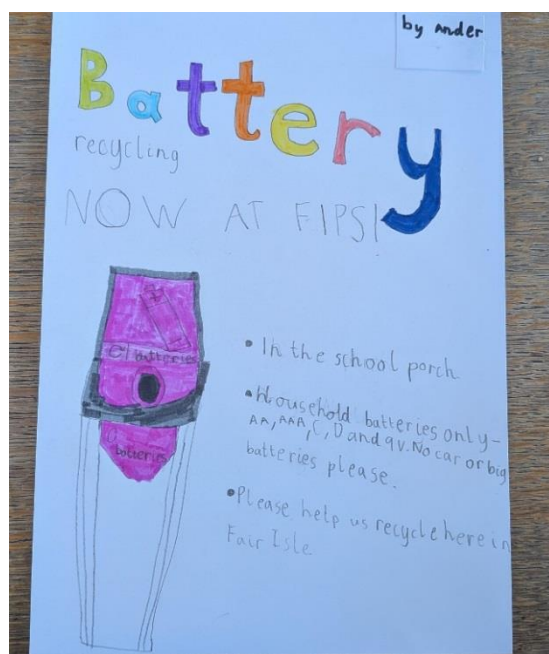 by Ander
Battery
recycling
NOW AT FIPS!
Batteries
batteries
• In the school porch
• Household batteries only –
AA, AAA, C, D and 9V. No car or big
batteries please.
• Please help us recycle here in
Fair Isle